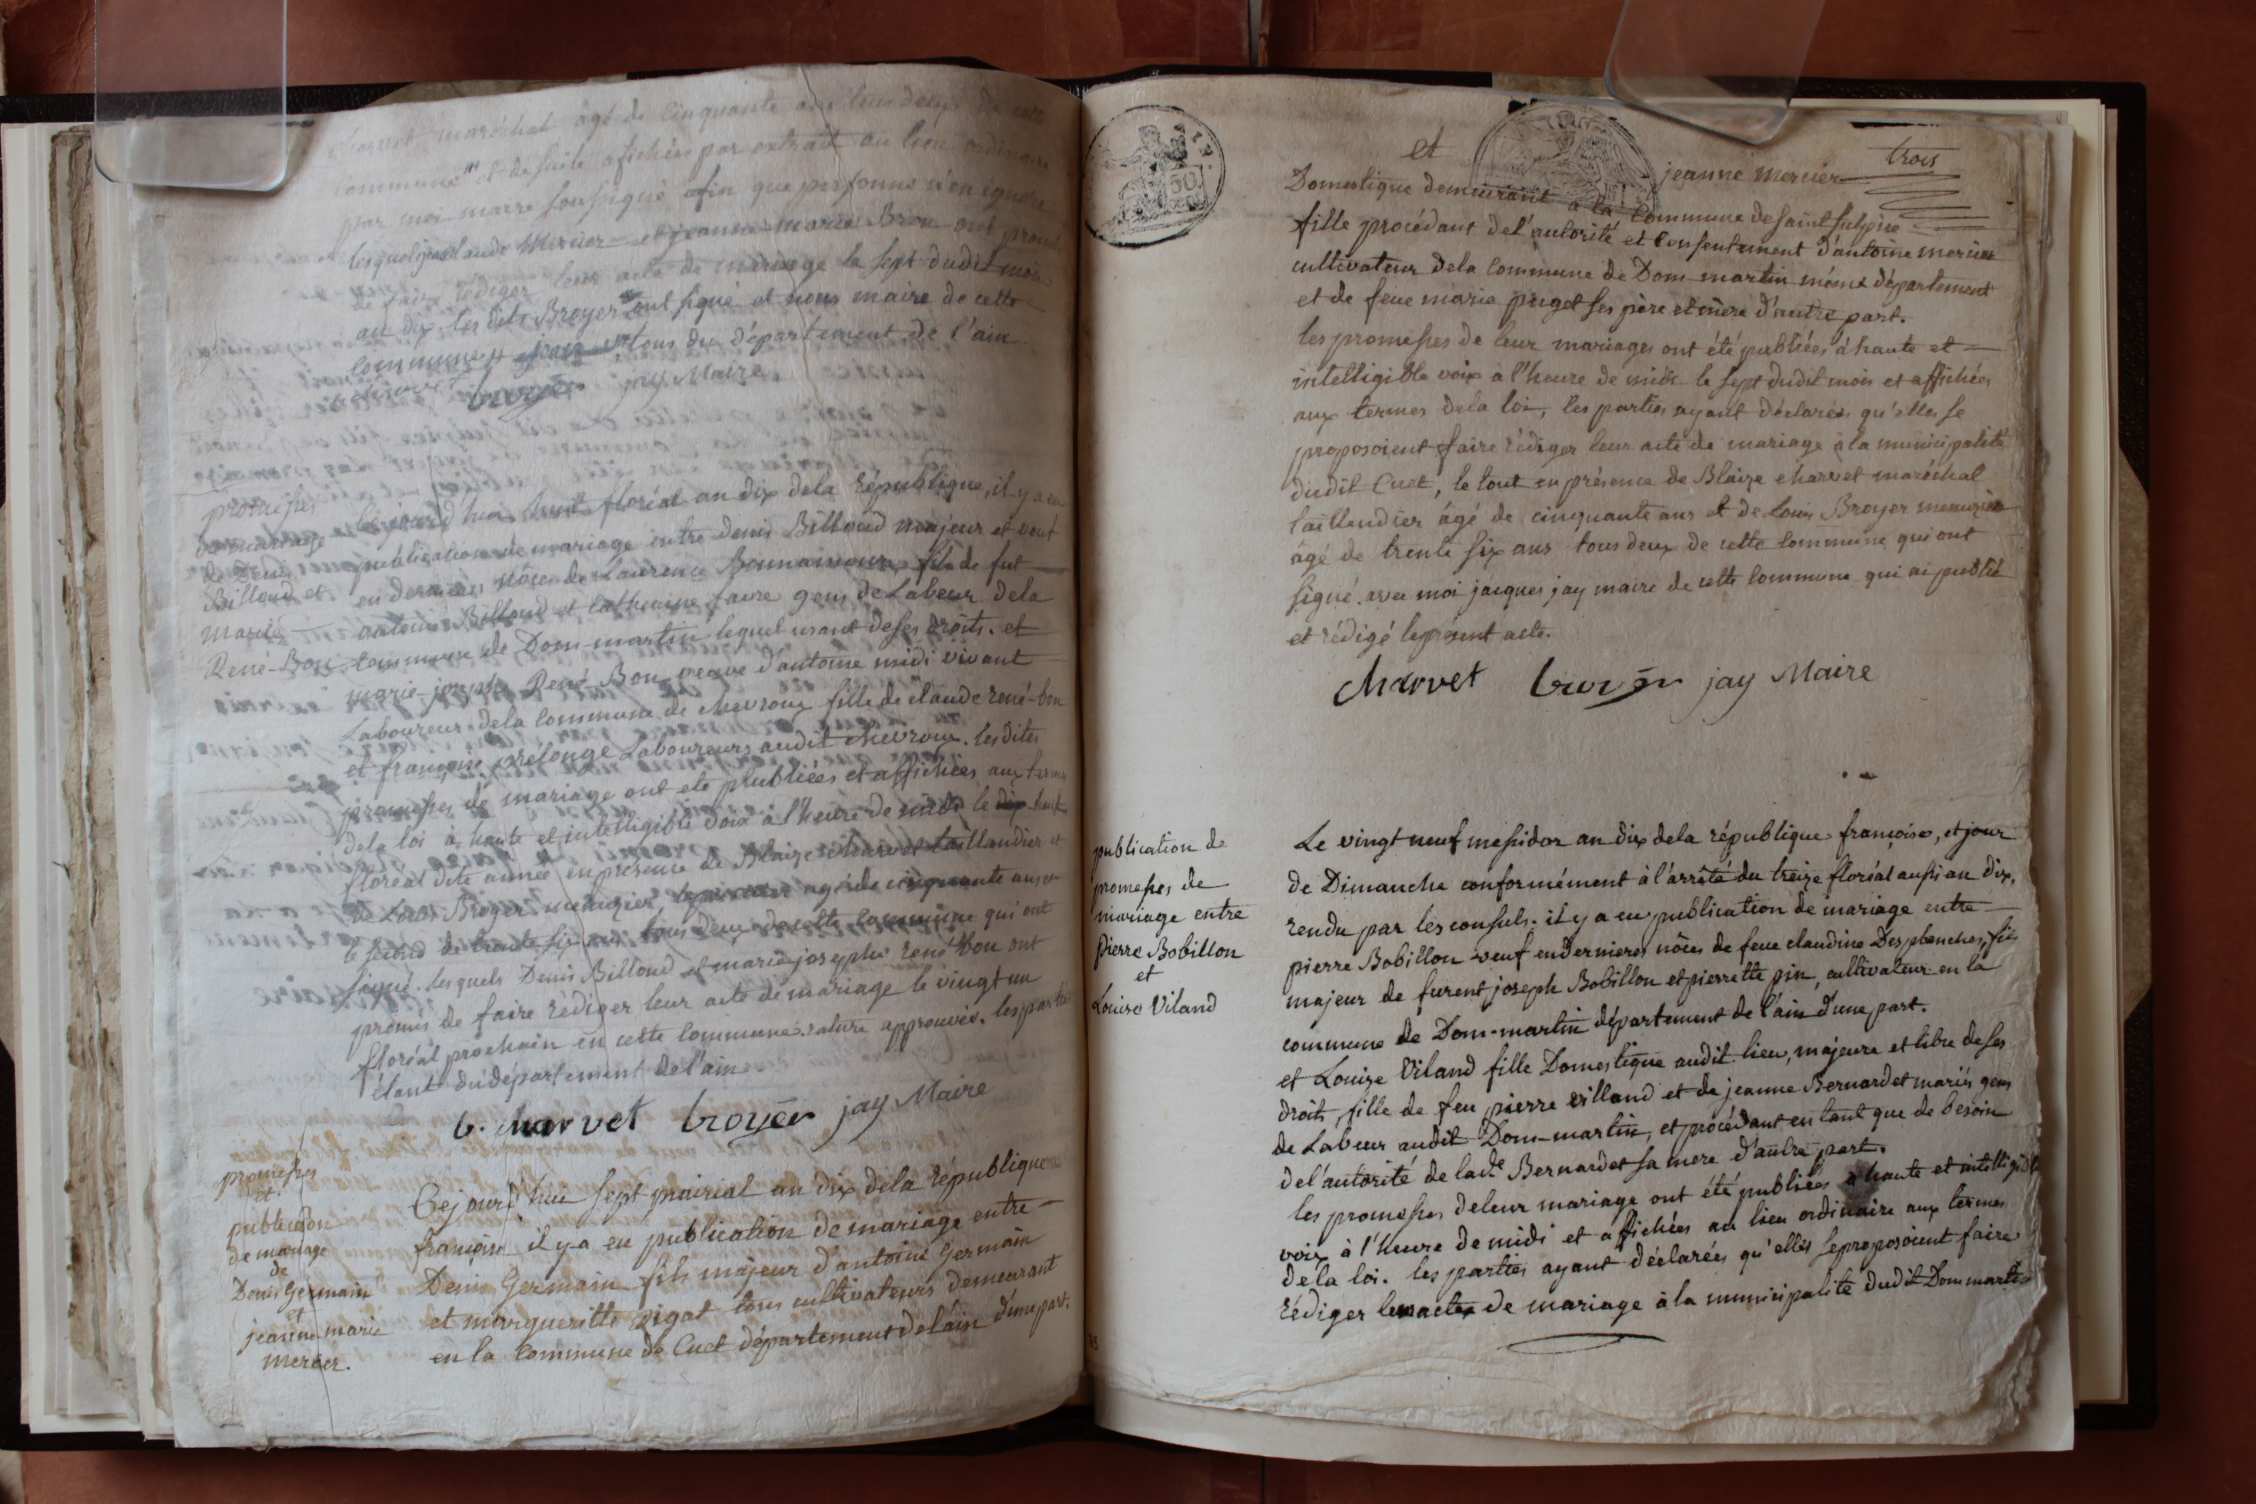 charvet maréchal âgé de cinquante ans tous deux de cette
commune et de suite afichée par extrait au lieu ordinaire
par moi maire soussigné afin que personne n'en ignore
lesquels claude Mercier et jeanne-marie Bron ont promis
de faire rédiger leur acte de mariage le sept dudit mois
an dix les dits Broyer ont signé et nous maire de cette
commune tous du département de l'ain
charvet broyer jay Maire
promesses
de mariage
de Denis
Billoud et
Marie
René-Bon
Cejourd'hui huit floréal an dix dela République, il y a eu
publication de mariage entre denis Billoud majeur et veuf
en dernières nôces de Laurence Bonnamour fils de fut
antoine Billoud et Catherine favre gens de Labeur dela
commune de Dom-martin lequel usant de ses droits. et
marie-josephe René Bon veuve d'antoine midi vivant
Laboureur dela commune de chevroux fille de claude rené-bon
et françoise prélonge Laboureurs audit chevroux. lesdites
promesses de mariage ont eté plubliées et affichées aux termes
dela loi à haute et intelligible voix à l'heure de midi le dix huit
floréal dite année en présence de Blaize charvet taillandier et
de Louis Broyer menuzier le premier agé de cinquante ans et
le second de trente six ans tous deux de cette commune qui ont
signé. lesquels Denis Billoud et marie josephe rené bon ont
promis de faire rédiger leur acte de mariage le vingt un
floréal prochain en cette commune. rature approuvée. les parties
étant du département de l'ain
b. charvet broyer jay Maire
promesses
et
publication
de mariage
de
Denis Germain
et
jeanne-marie
mercier.
Cejourd'hui sept prairial an dix dela République
françoise il y a eu publication de mariage entre
Denis Germain fils majeur d'antoine Germain
et margueritte pigat tous cultivateurs demeurant
en la commune de Cuet département delain d'une part.
et jeanne mercier trois
Domestique demeurant à la commune de saint sulpice
fille procédant del'autorité et consentement d'antoine mercier
cultivateur dela commune de Dom-martin même département
et de feue marie puget ses père et mère d'autre part.
les promesses de leur mariages ont été publiées à haute et
intelligible voix à l'heure de midi le sept dudit mois et affichées
aux termes dela loi, les parties ayant déclarées qu'elles se
proposoient faire rédiger leur acte de mariage à la municipalité
dudit Cuet, le tout en présence de Blaize charvet maréchal
taillandier âgé de cinquante ans et de Louis Broyer menuzier
âgé de trente six ans tous deux de cette commune qui ont
signé avec moi jacques jay maire de cette commune qui ai publié
et rédigé leprésent acte.
charvet broyer jay Maire
publication de
promesses de
mariage entre
Pierre Bobillon
et
Louise Viland
Le vingt neuf messidor an dix dela république françoise, et jour
de Dimanche conformément à l'arrêté du treize floréal aussi an dix,
rendu par les consuls. il y a eu publication de mariage entre
pierre Bobillon veuf en dernieres nôces de feue claudine Desplanches, fils
majeur de furent joseph Bobillon et pierrette pin, cultivateur en la
commune de Dom-martin département de l'ain d'une part.
et Louize Viland fille Domestique audit lieu, majeure et libre de ses
droits, fille de feu pierre villand et de jeanne Bernardet mariés gens
de Labeur audit Dom-martin, et procédant en tant que de besoin
del'autorité de lade Bernardet sa mere d'autre part.
les promesses deleur mariage ont été publiées à haute et intelligible
voix à l'heure de midi et affichées au lieu ordinaire aux termes
dela loi. les parties ayant déclarées qu'elles seproposoient faire
rédiger leur acte de mariage à la municipalité dudit Dommartin